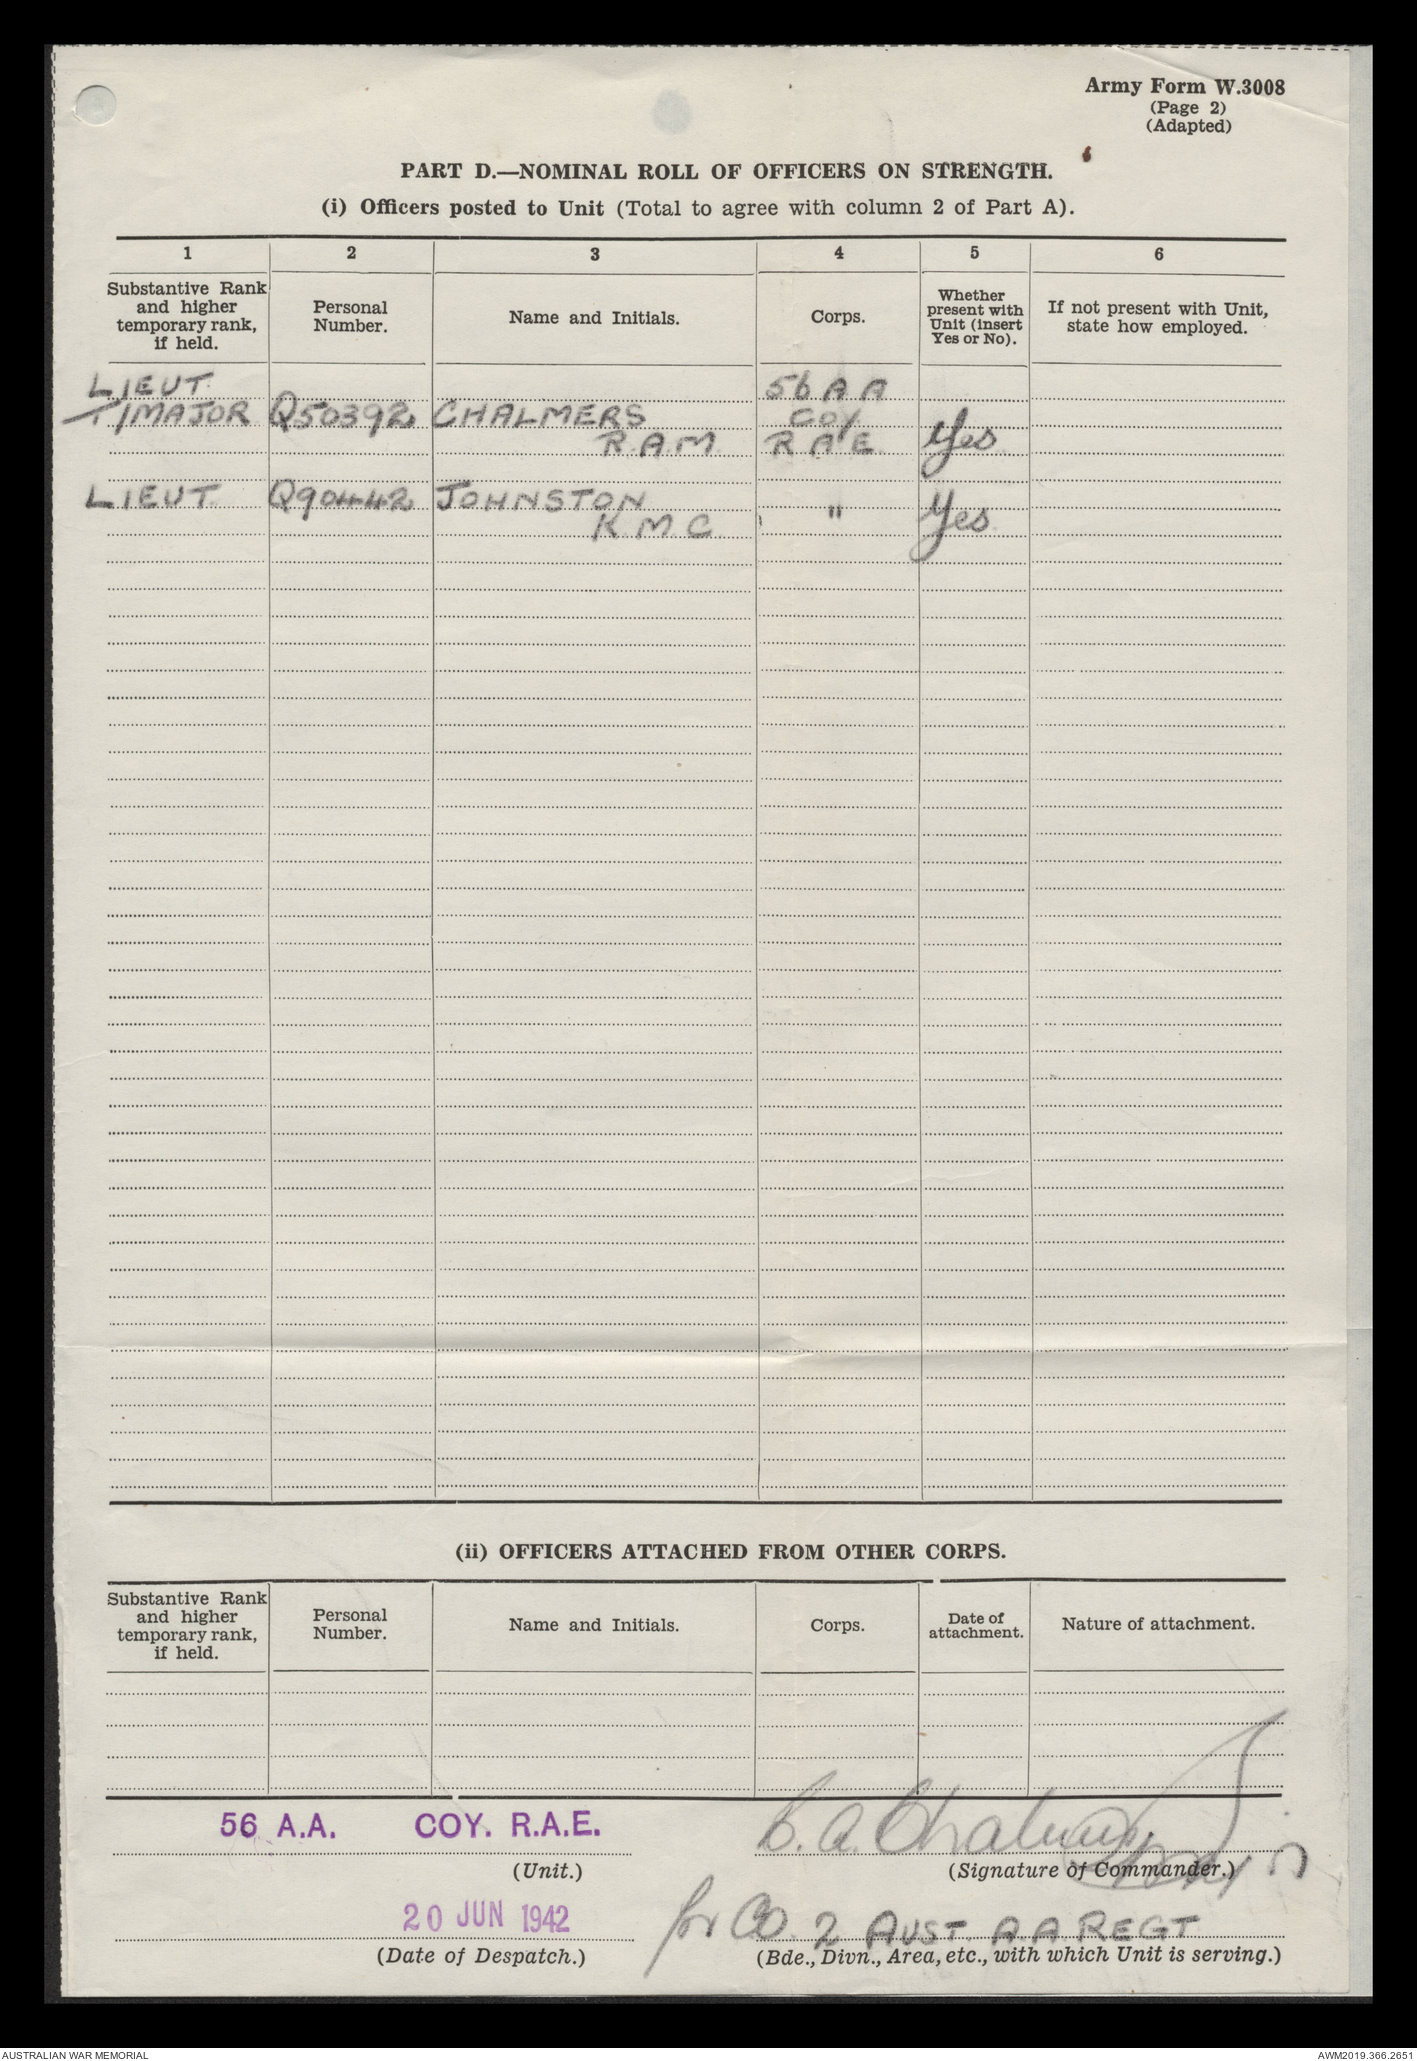 Army Form W.3008
(Page 2)
(Adapted)
PART D.—NOMINAL ROLL OF OFFICERS ON STRENGTH.
(i) Officers posted to Unit (Total to agree with column 2 of Part A).
1 2 3 4 5 6
Substantive Rank and higher temporary rank, if held. Personal Number. Name and Initials. Corps. Whether present with Unit (insert Yes or No). If not present with Unit, state how employed.
LIEUT 56 A A
T/MAJOR Q50392 CHALMERS COY
R.A.M. R A E Yes
LIEUT Q90442 JOHNSTON " Yes
K M C
(ii) OFFICERS ATTACHED FROM OTHER CORPS.
Substantive Rank and higher temporary rank, if held. Personal Number. Name and Initials. Corps. Date of attachment. Nature of attachment.
56 A.A. COY. R.A.E. Chalmers
(Unit.) (Signature of Commander.)
20 JUN 1942 for CO. 2 AUST. A.A. REGT
(Date of Despatch.) (Bde., Divn., Area, etc., with which Unit is serving.)
AUSTRALIAN WAR MEMORIAL AWM2019.366.2651